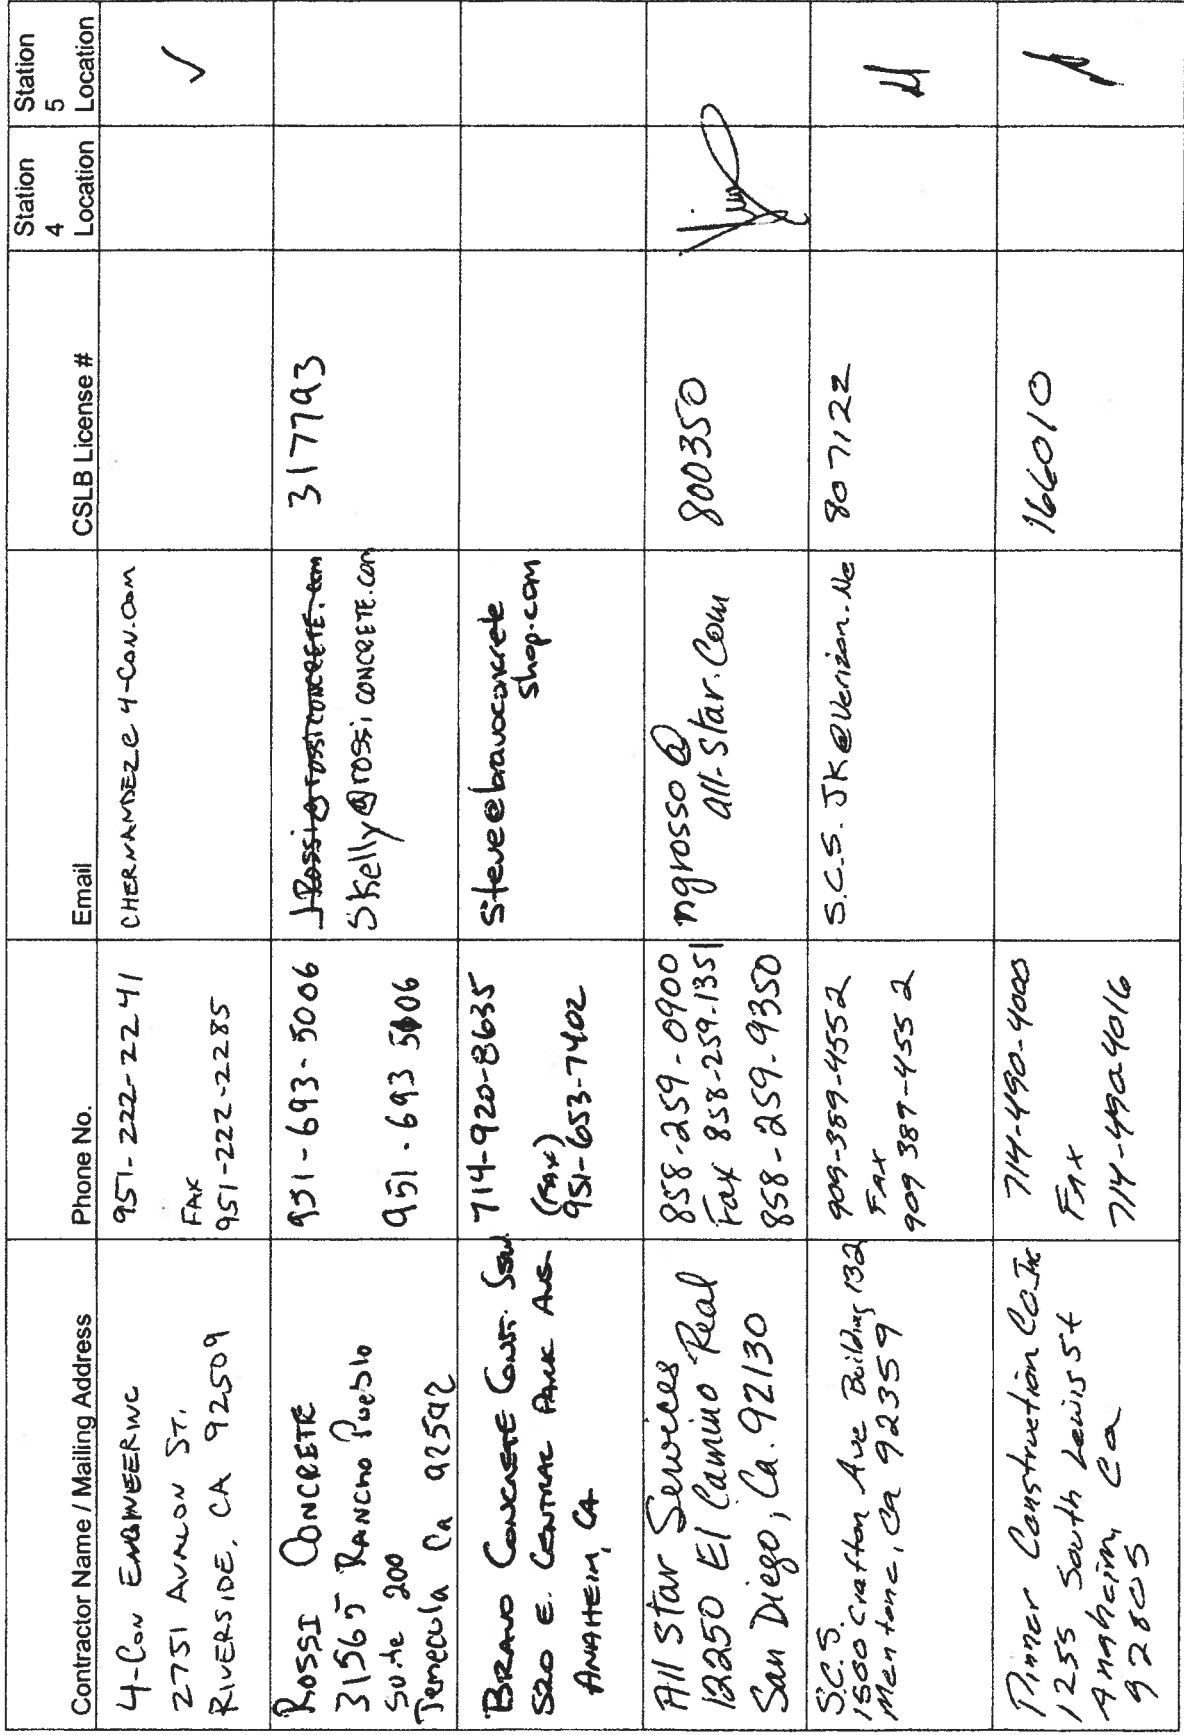 Contractor Name / Mailing Address
Phone No.
Email
CSLB License #
Station
4
Location
Station
5
Location
4-Con ENGINEERING
2751 AVALON ST.
RIVERSIDE, CA 92509
951-222-2241
FAX
951-222-2285
CHERNANDEZ@4-CON.COM
✓
ROSSI CONCRETE
31565 RANCHO Pueblo
Suite 200
Temecula Ca 92592
951-693-5006
951-693 5006
JRossi@rossiconcrete.com
Skelly@rossiconcrete.com
317793
BRAVO CONCRETE CONST. Serv.
520 E. CENTRAL PARK AVE
ANAHEIM, CA
714-920-8635
(FAX)
951-653-7402
Steve@bravoconcrete
shop.com
All Star Services
12250 El Camino Real
San Diego, Ca. 92130
858-259-0900
Fax 858-259-1351
858-259-9350
ngrosso@
all-star.com
800350
S.C.S.
1500 Crafton Ave Building 132
Mentone, Ca 92359
909-389-4552
FAX
909 389-4552
S.C.S. JK@Verizon.Ne
807122
Pinner Construction Co. Inc
1255 South Lewis St
Anaheim, Ca
92805
714-490-4000
FAX
714-490 4016
166010